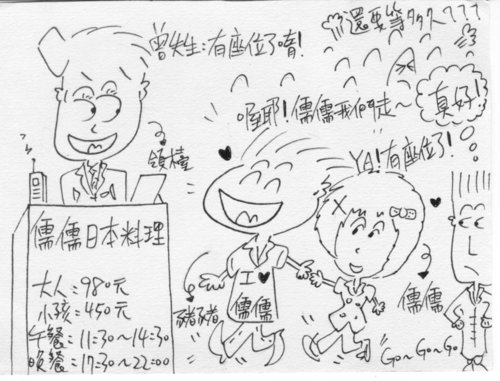 曾先生:有座位了唷!
還要等多久???
喔耶!儒儒我們走~
真好!
領檯
YA!有座位了!
儒儒日本料理
大人:980元
小孩:450元
午餐:11:30~14:30
晚餐:17:30~22:00
豬豬
I ♥
儒儒
儒儒
GO~GO~GO